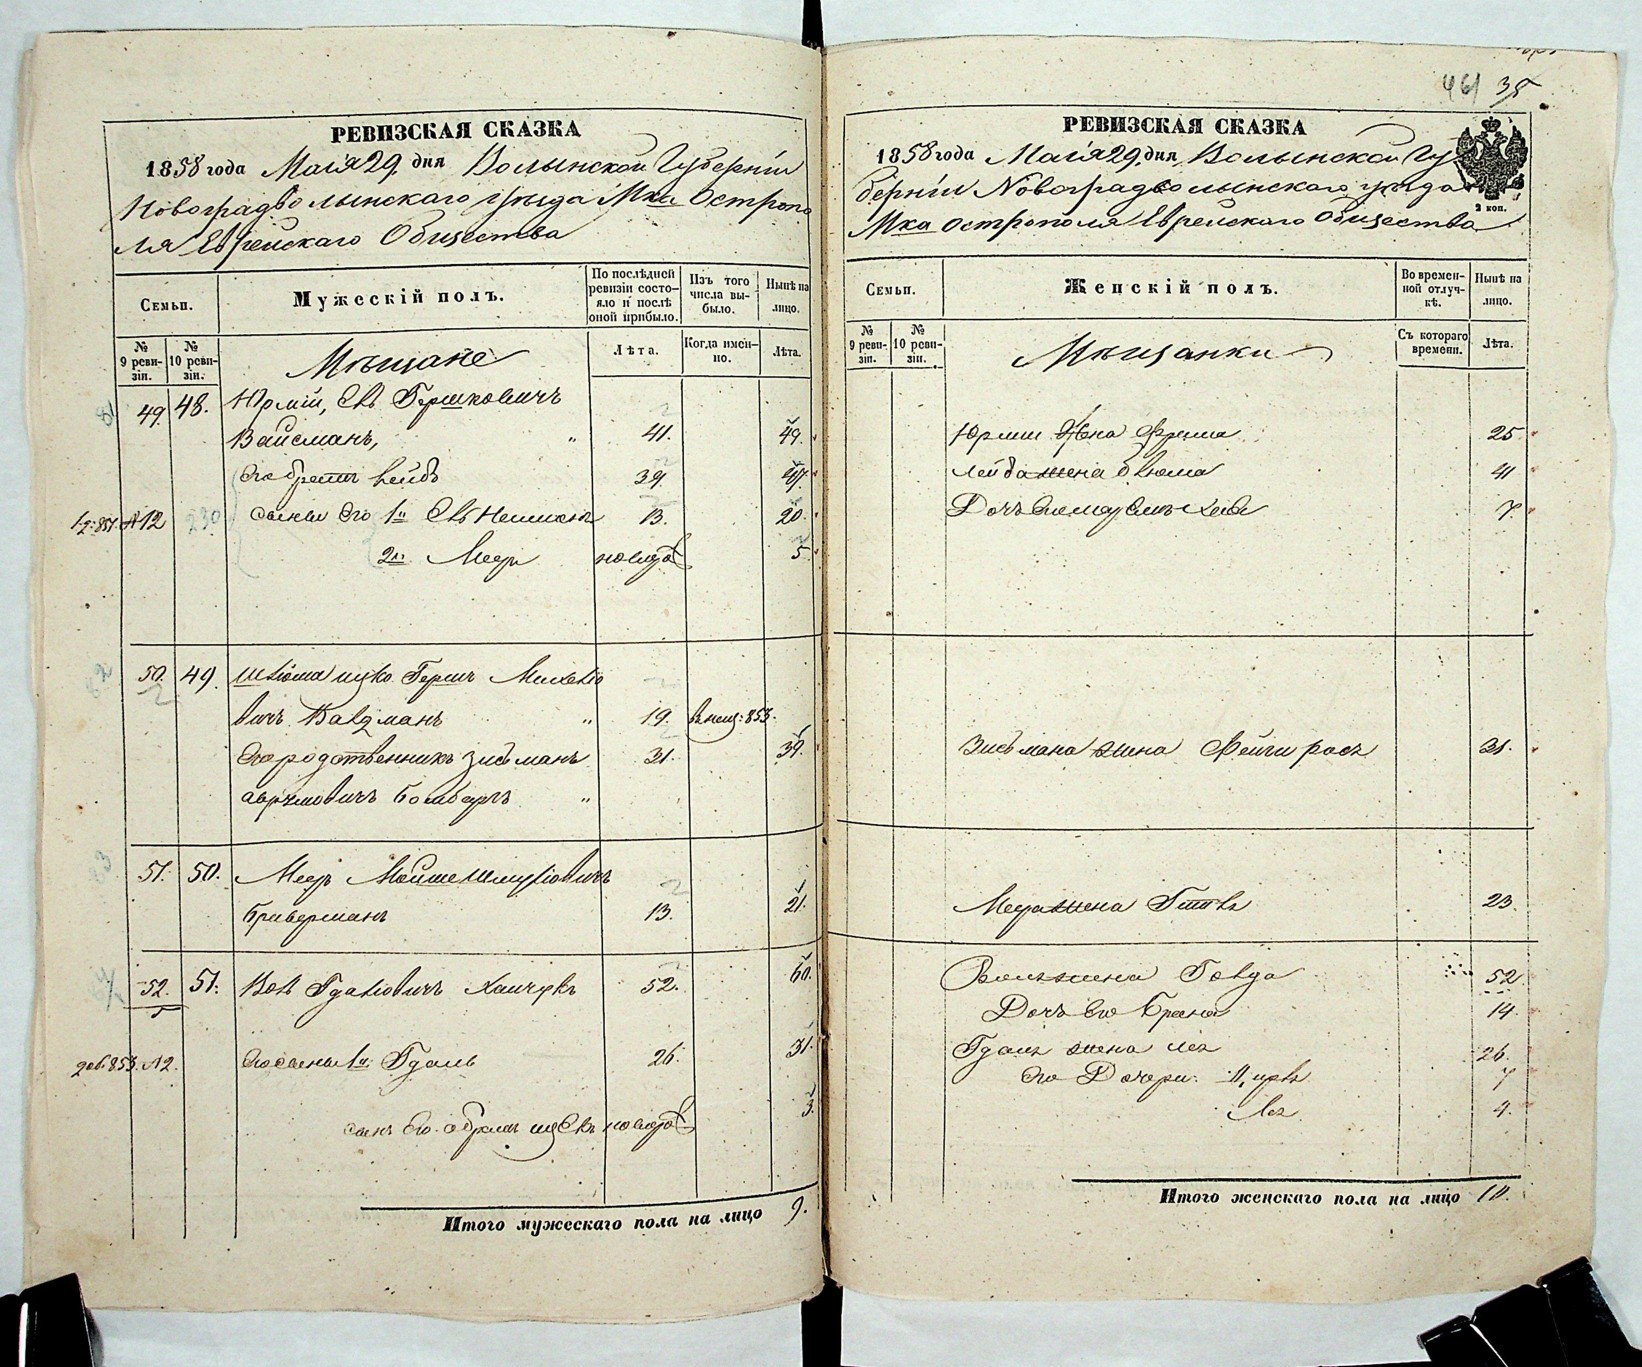 461 35
РЕВИЗСКАЯ СКАЗКА
1858 года Маія 29 дня Волынской Губерніи
Новоградволынскаго уѣзда Мка Остропо
ля Еврейскаго Общества
Семьи.
Мужескій полъ.
По послѣдней ревизіи состояло и послѣ оной прибыло.
Изъ того числа выбыло.
Нынѣ на лицо.
№ 9 ревизіи.
№ 10 ревизіи.
Мѣщане
Лѣта.
Когда именно.
Лѣта.
49. 48. Юрмій, Гершковичъ
Вайсманъ, " 41. 49.
Его братъ Лейбъ 39. 47.
12 сыны Его 1й 13. 20.
2й Меер новорож 5.
50. 49. Шліома Герш Михелiо
вичъ Валдманъ " 19. 853.
Его родственникъ Зисьманъ 31. 39.
Бомберъ "
51. 50. Меер Мойше Шмулiовичъ
Бриверманъ 13. 21.
52. 51. Вол Гдалiовичъ Хаичукъ 52. 60.
853. №2. Его сыны 1й Гдаль 26. 31.
сынъ Его Абрамъ новорож 3.
Итого мужескаго пола на лицо 9.
РЕВИЗСКАЯ СКАЗКА
1858 года Маія 29 дня Волынской Гу
берніи Новоградволынскаго уѣзда
Мка Острополя Еврейскаго Общества
2 коп.
Семьи.
Женскій полъ.
Во временной отлучкѣ.
Нынѣ на лицо.
№ 9 ревизіи.
№ 10 ревизіи.
Мѣщанки
Съ котораго времени.
Лѣта.
Юрмии Жена Фрейма 25
Лейба жена Блюма 41
Дочь 7.
Зисьмана жена Фейги рось 31.
Меера жена Гитля 23.
Воля жена Голда 52
Дочь Его Брана 14.
Гдаля жена Лея 26.
Его Дочери: Цирля 7
Лея 4.
Итого женскаго пола на лицо 10.